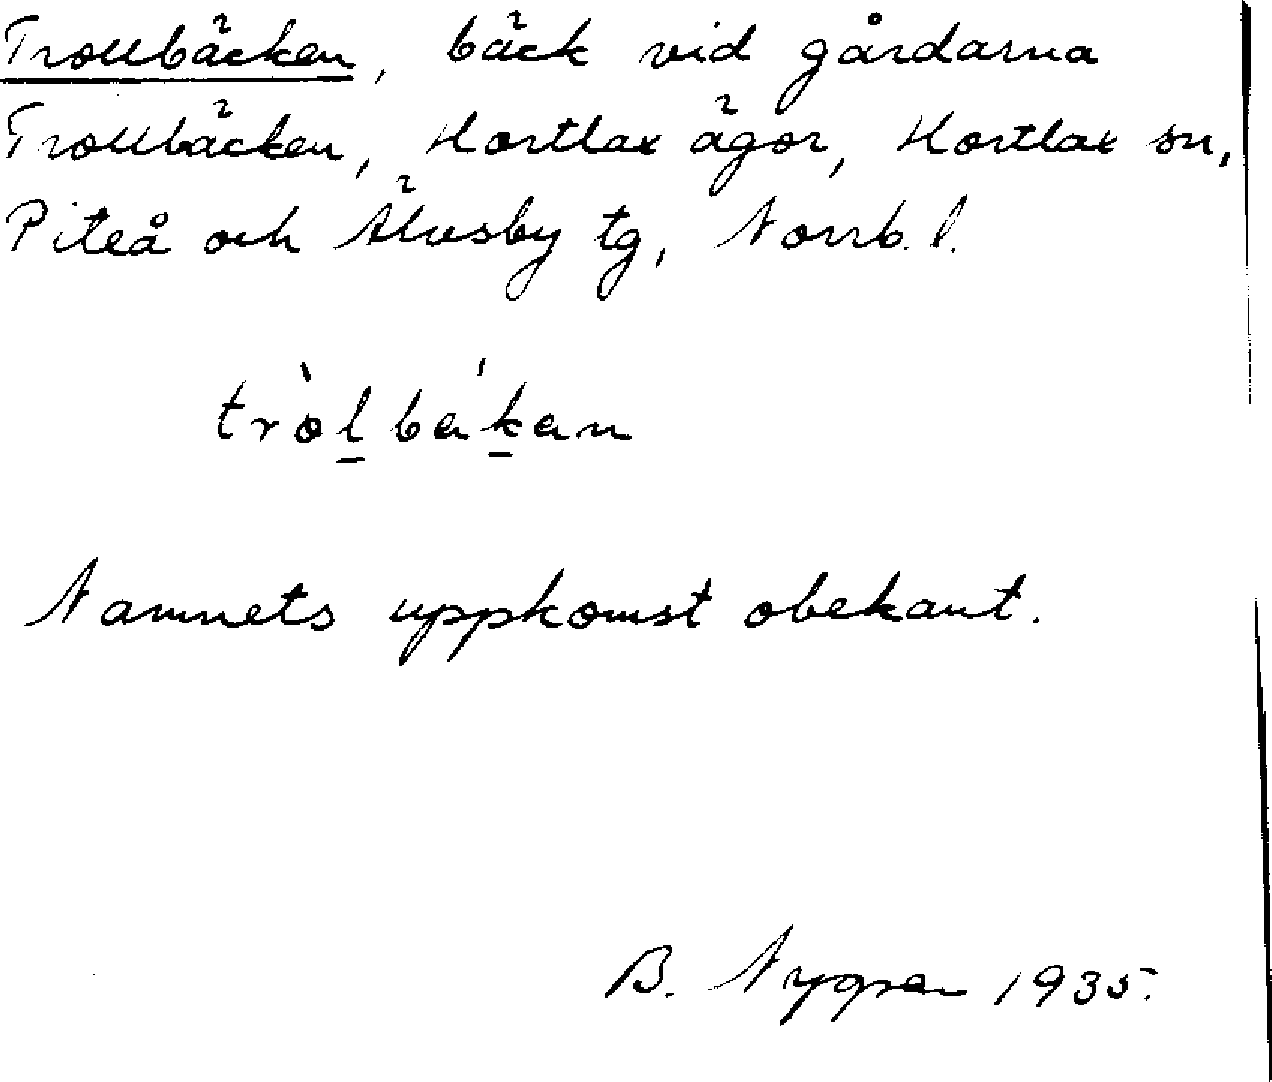 Trollbäcken, bäck vid gårdarna
Trollbäcken, Hortlax ägor, Hortlax sn,
Piteå och Älvsby tg, Norrb. l.
tròl̲bä́k̲an
Namnets uppkomst obekant.
B. Nygren 1935.